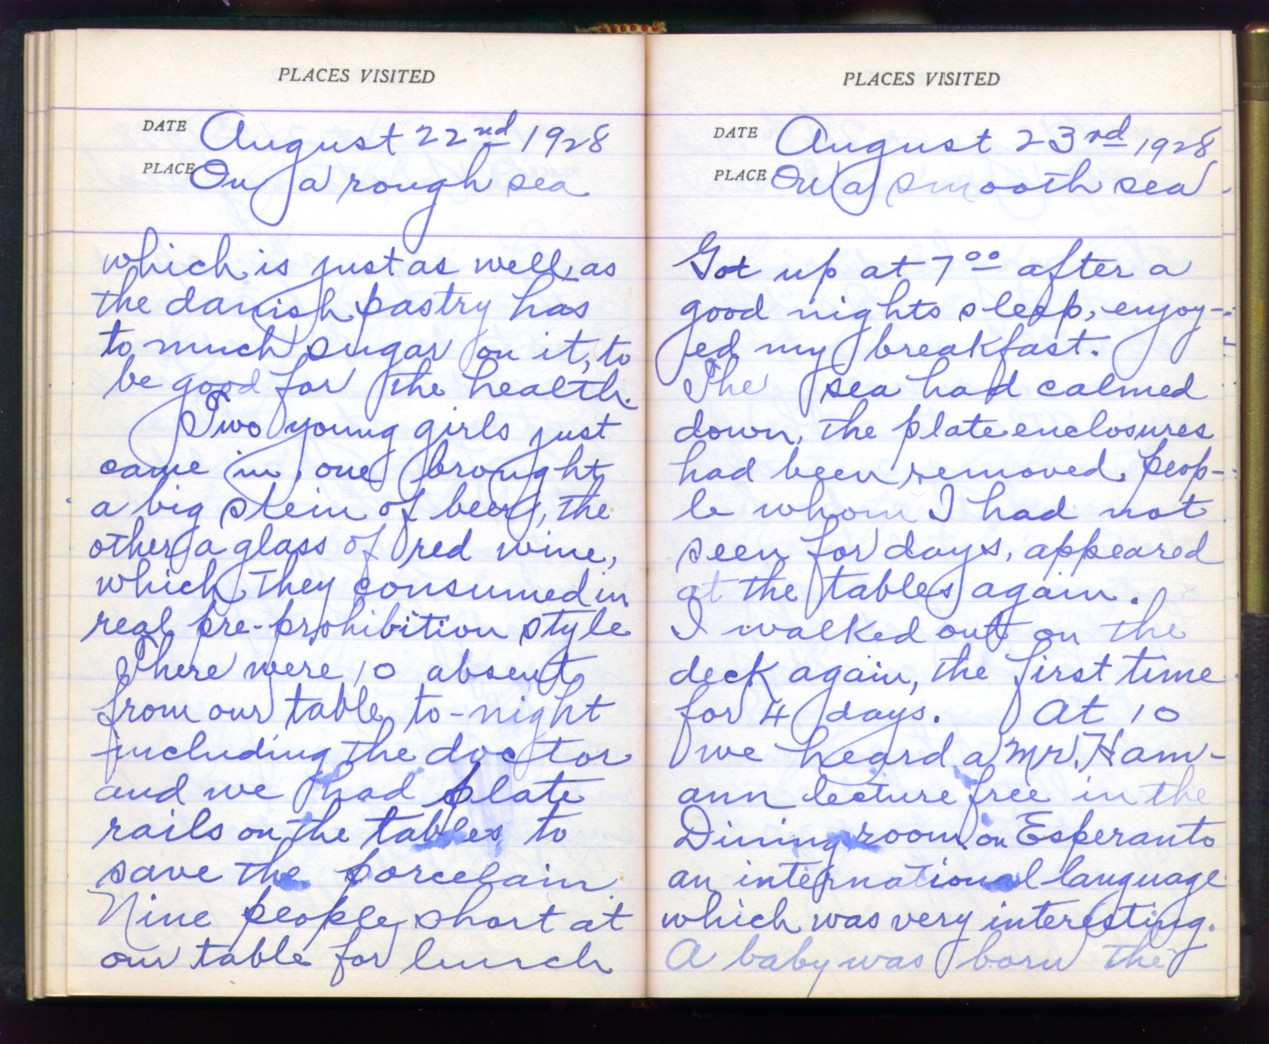 PLACES VISITED
DATE August 22nd 1928
PLACE On a rough sea
which is just as well, as
the danish pastry has
to much sugar on it, to
be good for the health.
Two young girls just
came in, one brought
a big stein of beer, the
other a glass of red wine,
which they consumed in
real pre-prohibition style
There were 10 absent
from our table to-night
including the doctor
and we had plate
rails on the tables to
save the porcelain
Nine people short at
our table for lunch
PLACES VISITED
DATE August 23rd 1928
PLACE On a smooth sea.
Got up at 7 00 after a
good nights sleep, enjoy-
ed my breakfast.
The sea had calmed
down, the plate enclosures
had been removed, peop-
le whom I had not
seen for days, appeared
at the tables again.
I walked out on the
deck again, the first time
for 4 days. At 10
we heard a Mr. Ham-
ann lecture free in the
Dining room on Esperanto
an international language
which was very interesting.
A baby was born the